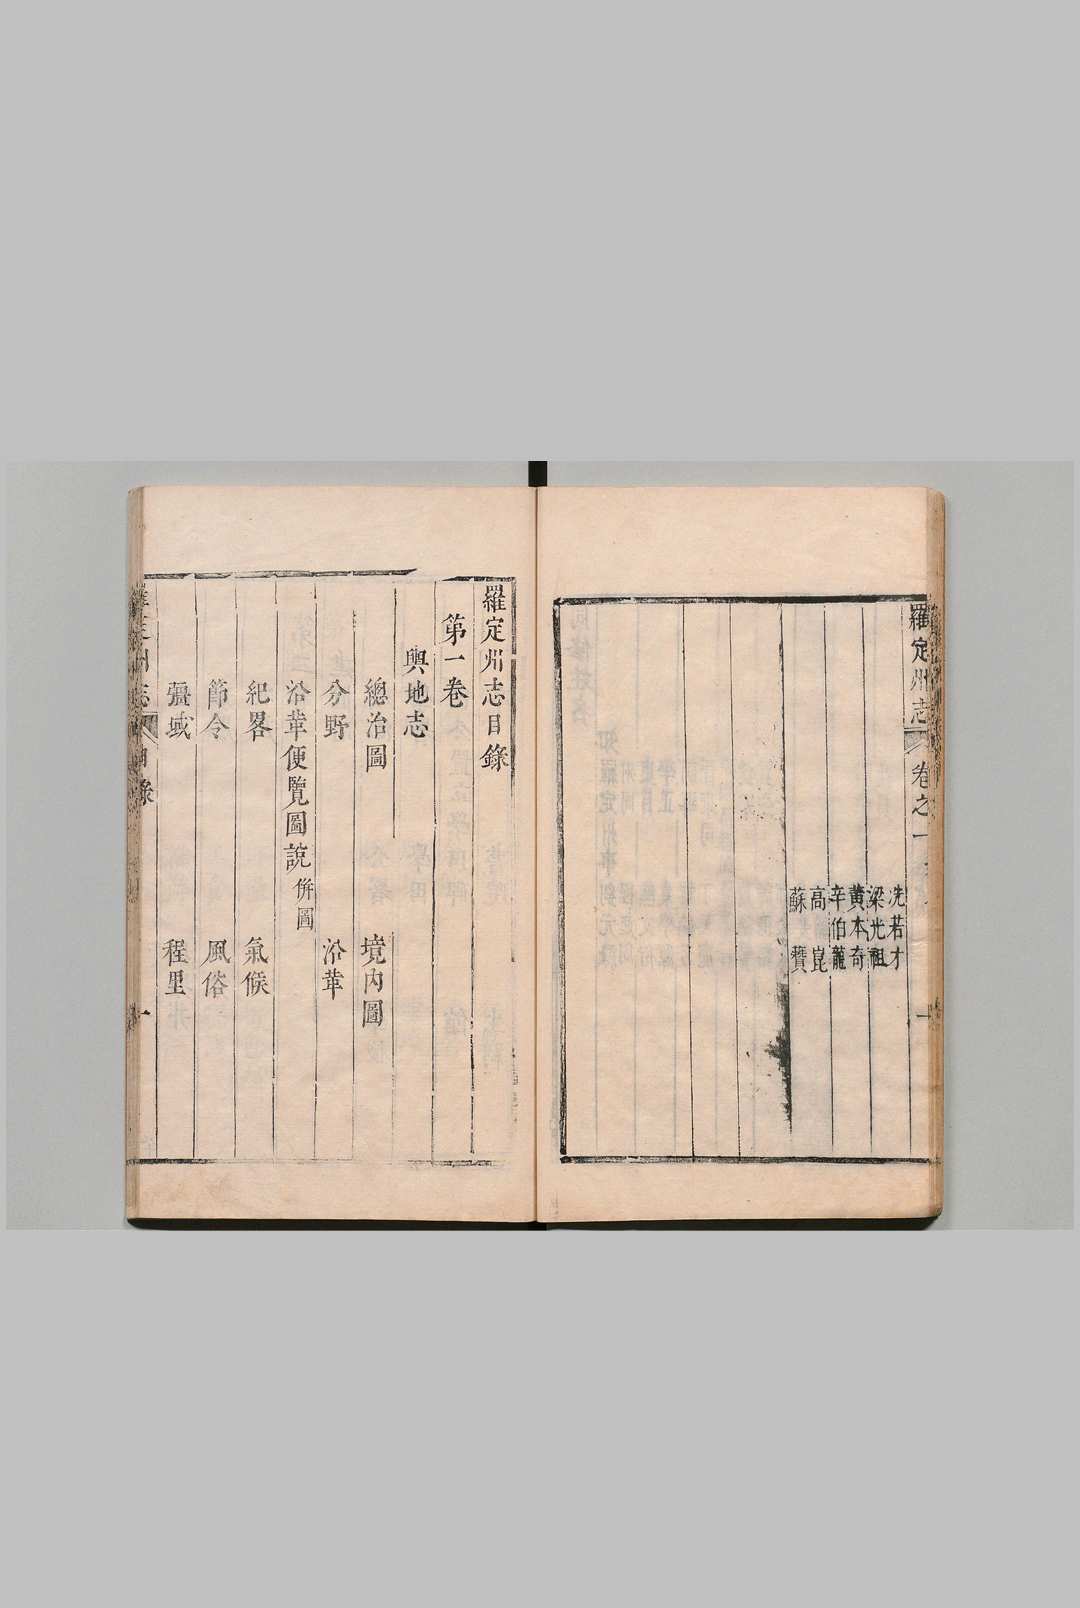 羅定州志 卷之一
冼若才
梁光祖
黃本奇
辛伯龍
高崑
蘇瓚
羅定州志目錄
第一卷
輿地志
總治圖 境內圖
分野 沿革
沿革便覽圖說 併圖
紀畧 氣候
節令 風俗
彊域 程里
羅定州志 目錄 一